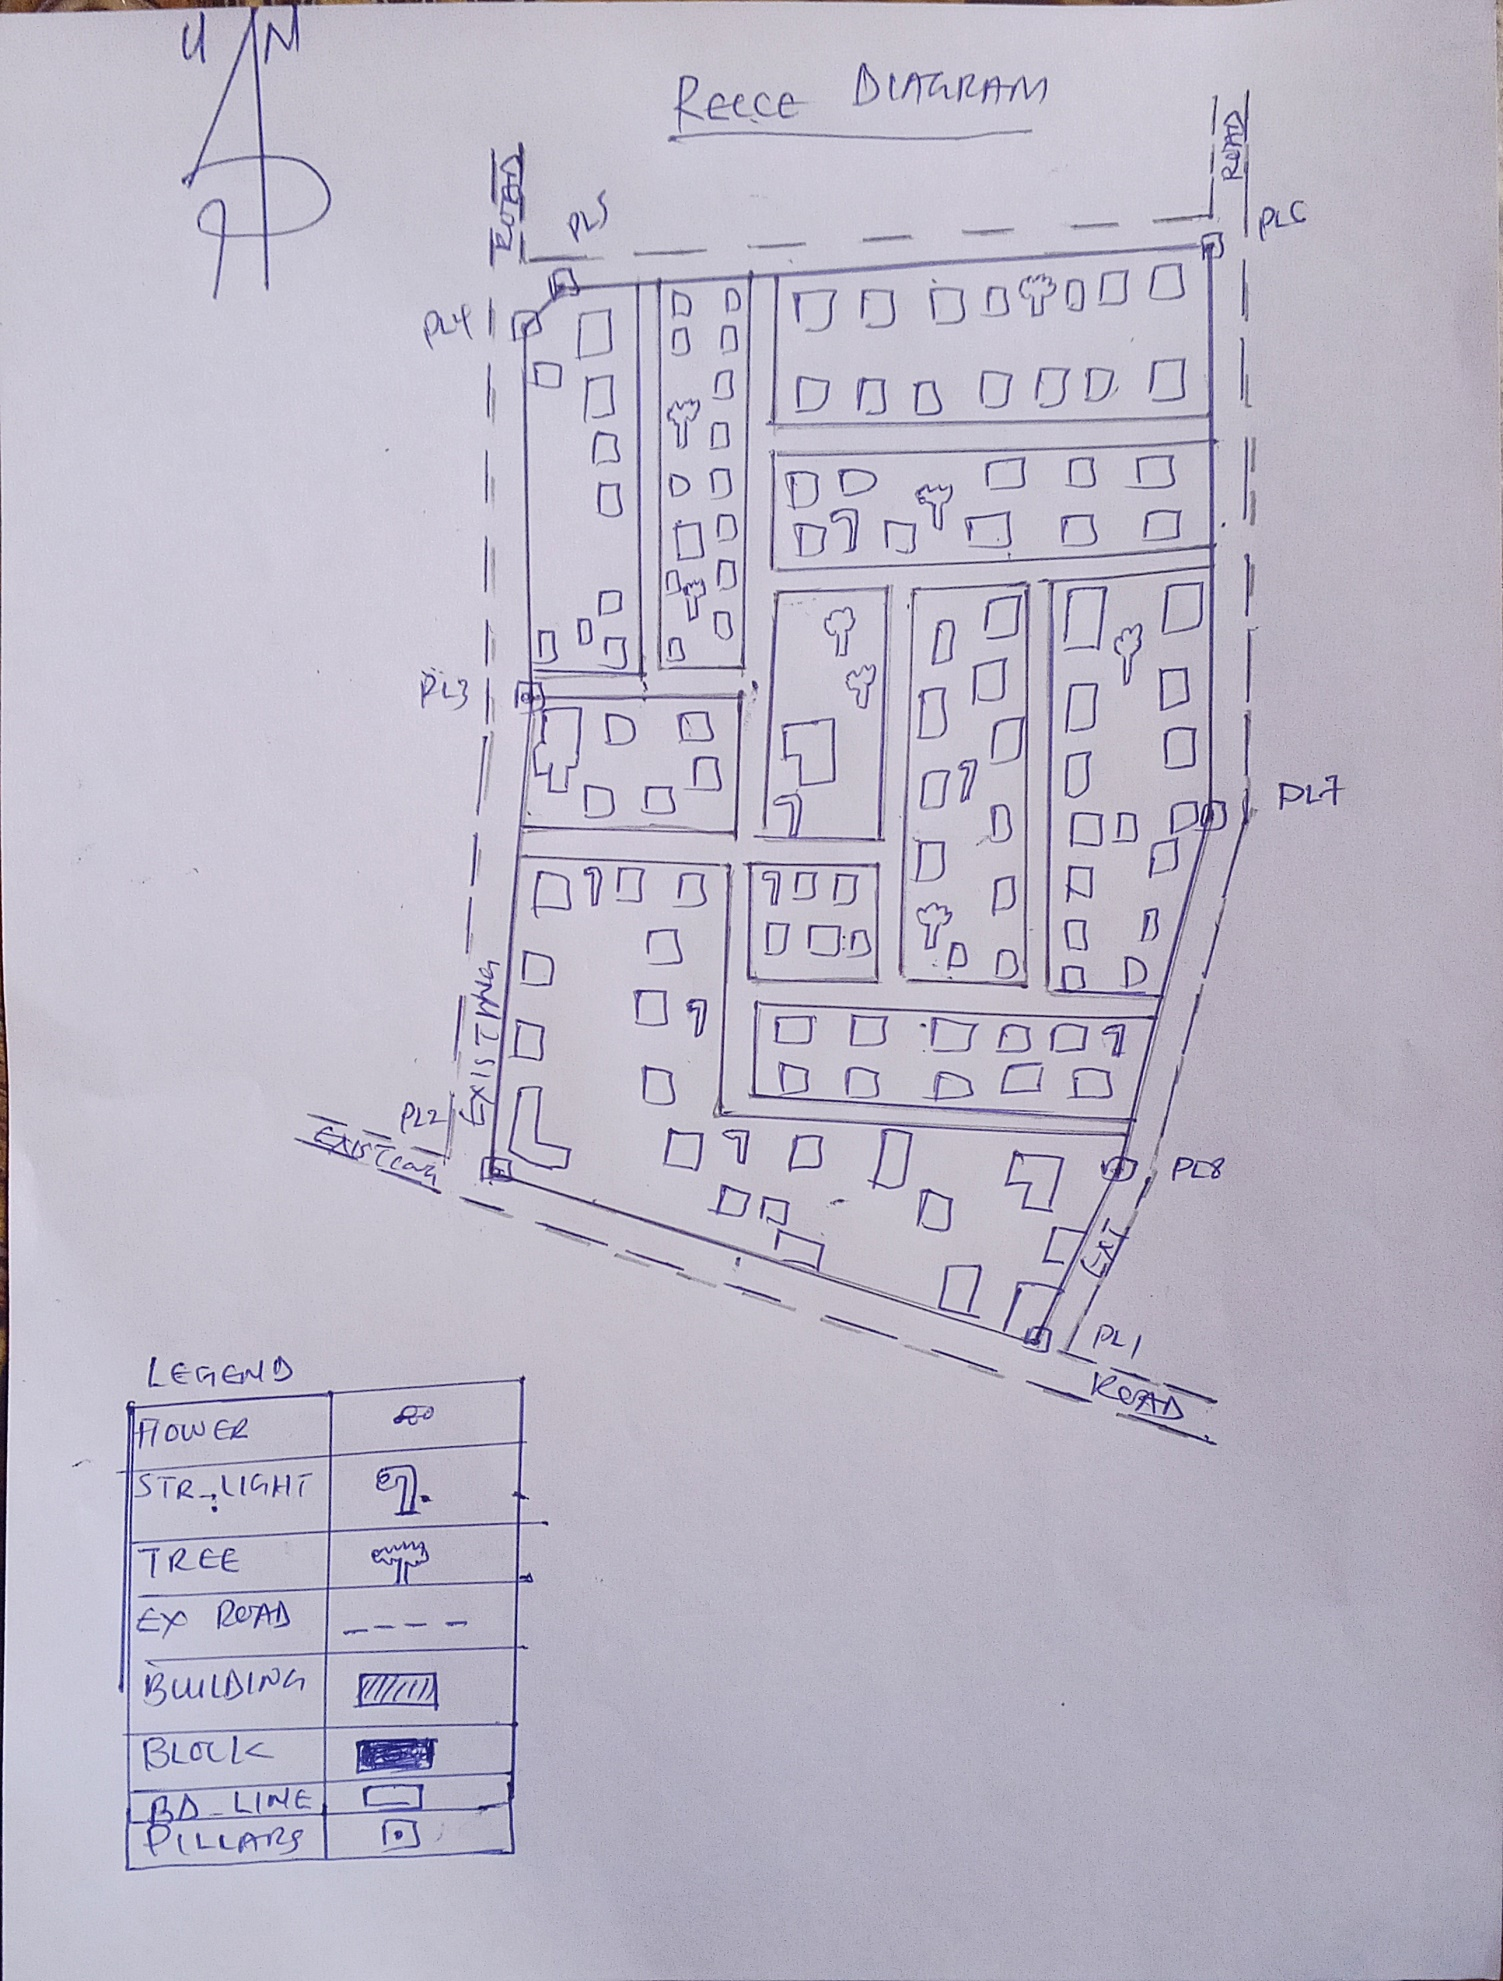 U N
REECE DIAGRAM
ROAD
ROAD
PL5
PL6
PL4
PL3
PL7
EXISTING
PL2
EXISTING
PL8
EXT
PL1
ROAD
LEGEND
FLOWER
STR_LIGHT
TREE
EX ROAD
BUILDING
BLOCK
BD_LINE
PILLARS